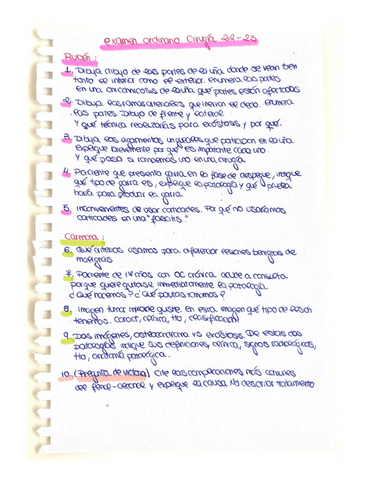 examen ordinario Cirugía 22-23
Rubén:
1. Dibuja dibujo de las partes de la uña donde se vean bien
tanto la interior como la exterior. Enumera las partes
en una onicomicosis de la uña qué partes están afectadas
2. Dibuja las ramas arteriales que inervan el dedo. Enumera
las partes. Dibujo de frente y lateral.
Y qué técnica realizarías para exóstosis y por qué.
3. Dibuja los ligamentos ungueales que participan en la uña.
Explique brevemente por qué es importante cada uno.
Y qué pasa si rompemos uno en una cirugía.
4. Paciente que presenta garra en la fase de despegue, indique
qué tipo de garra es, explique la patología y qué prueba
haría para producir la garra.
5. Inconvenientes de usar corticoides. Por qué no usaríamos
corticoides en una "fascitis".
Carmona:
6. Qué criterios usamos para diferenciar lesiones benignas de
malignas
7. Paciente de 18 años con OC crónica acude a consulta
porque quiere quitarse inmediatamente la patología.
¿Qué hacemos? ¿Qué pautas tomamos?
8. Imagen tumor
en esta imagen qué tipo de lesión
tenemos. Caract, clínica, tto, clasificación
9. Dos imágenes, osteocondroma vs exóstosis. De estas dos
patologías indique sus definiciones, clínica, signos radiológicos,
tto, anatomía patológica.
10. (Pregunta de victoria) Cite las complicaciones más comunes
del fenol-alcohol y explique la causa. No describir tratamiento